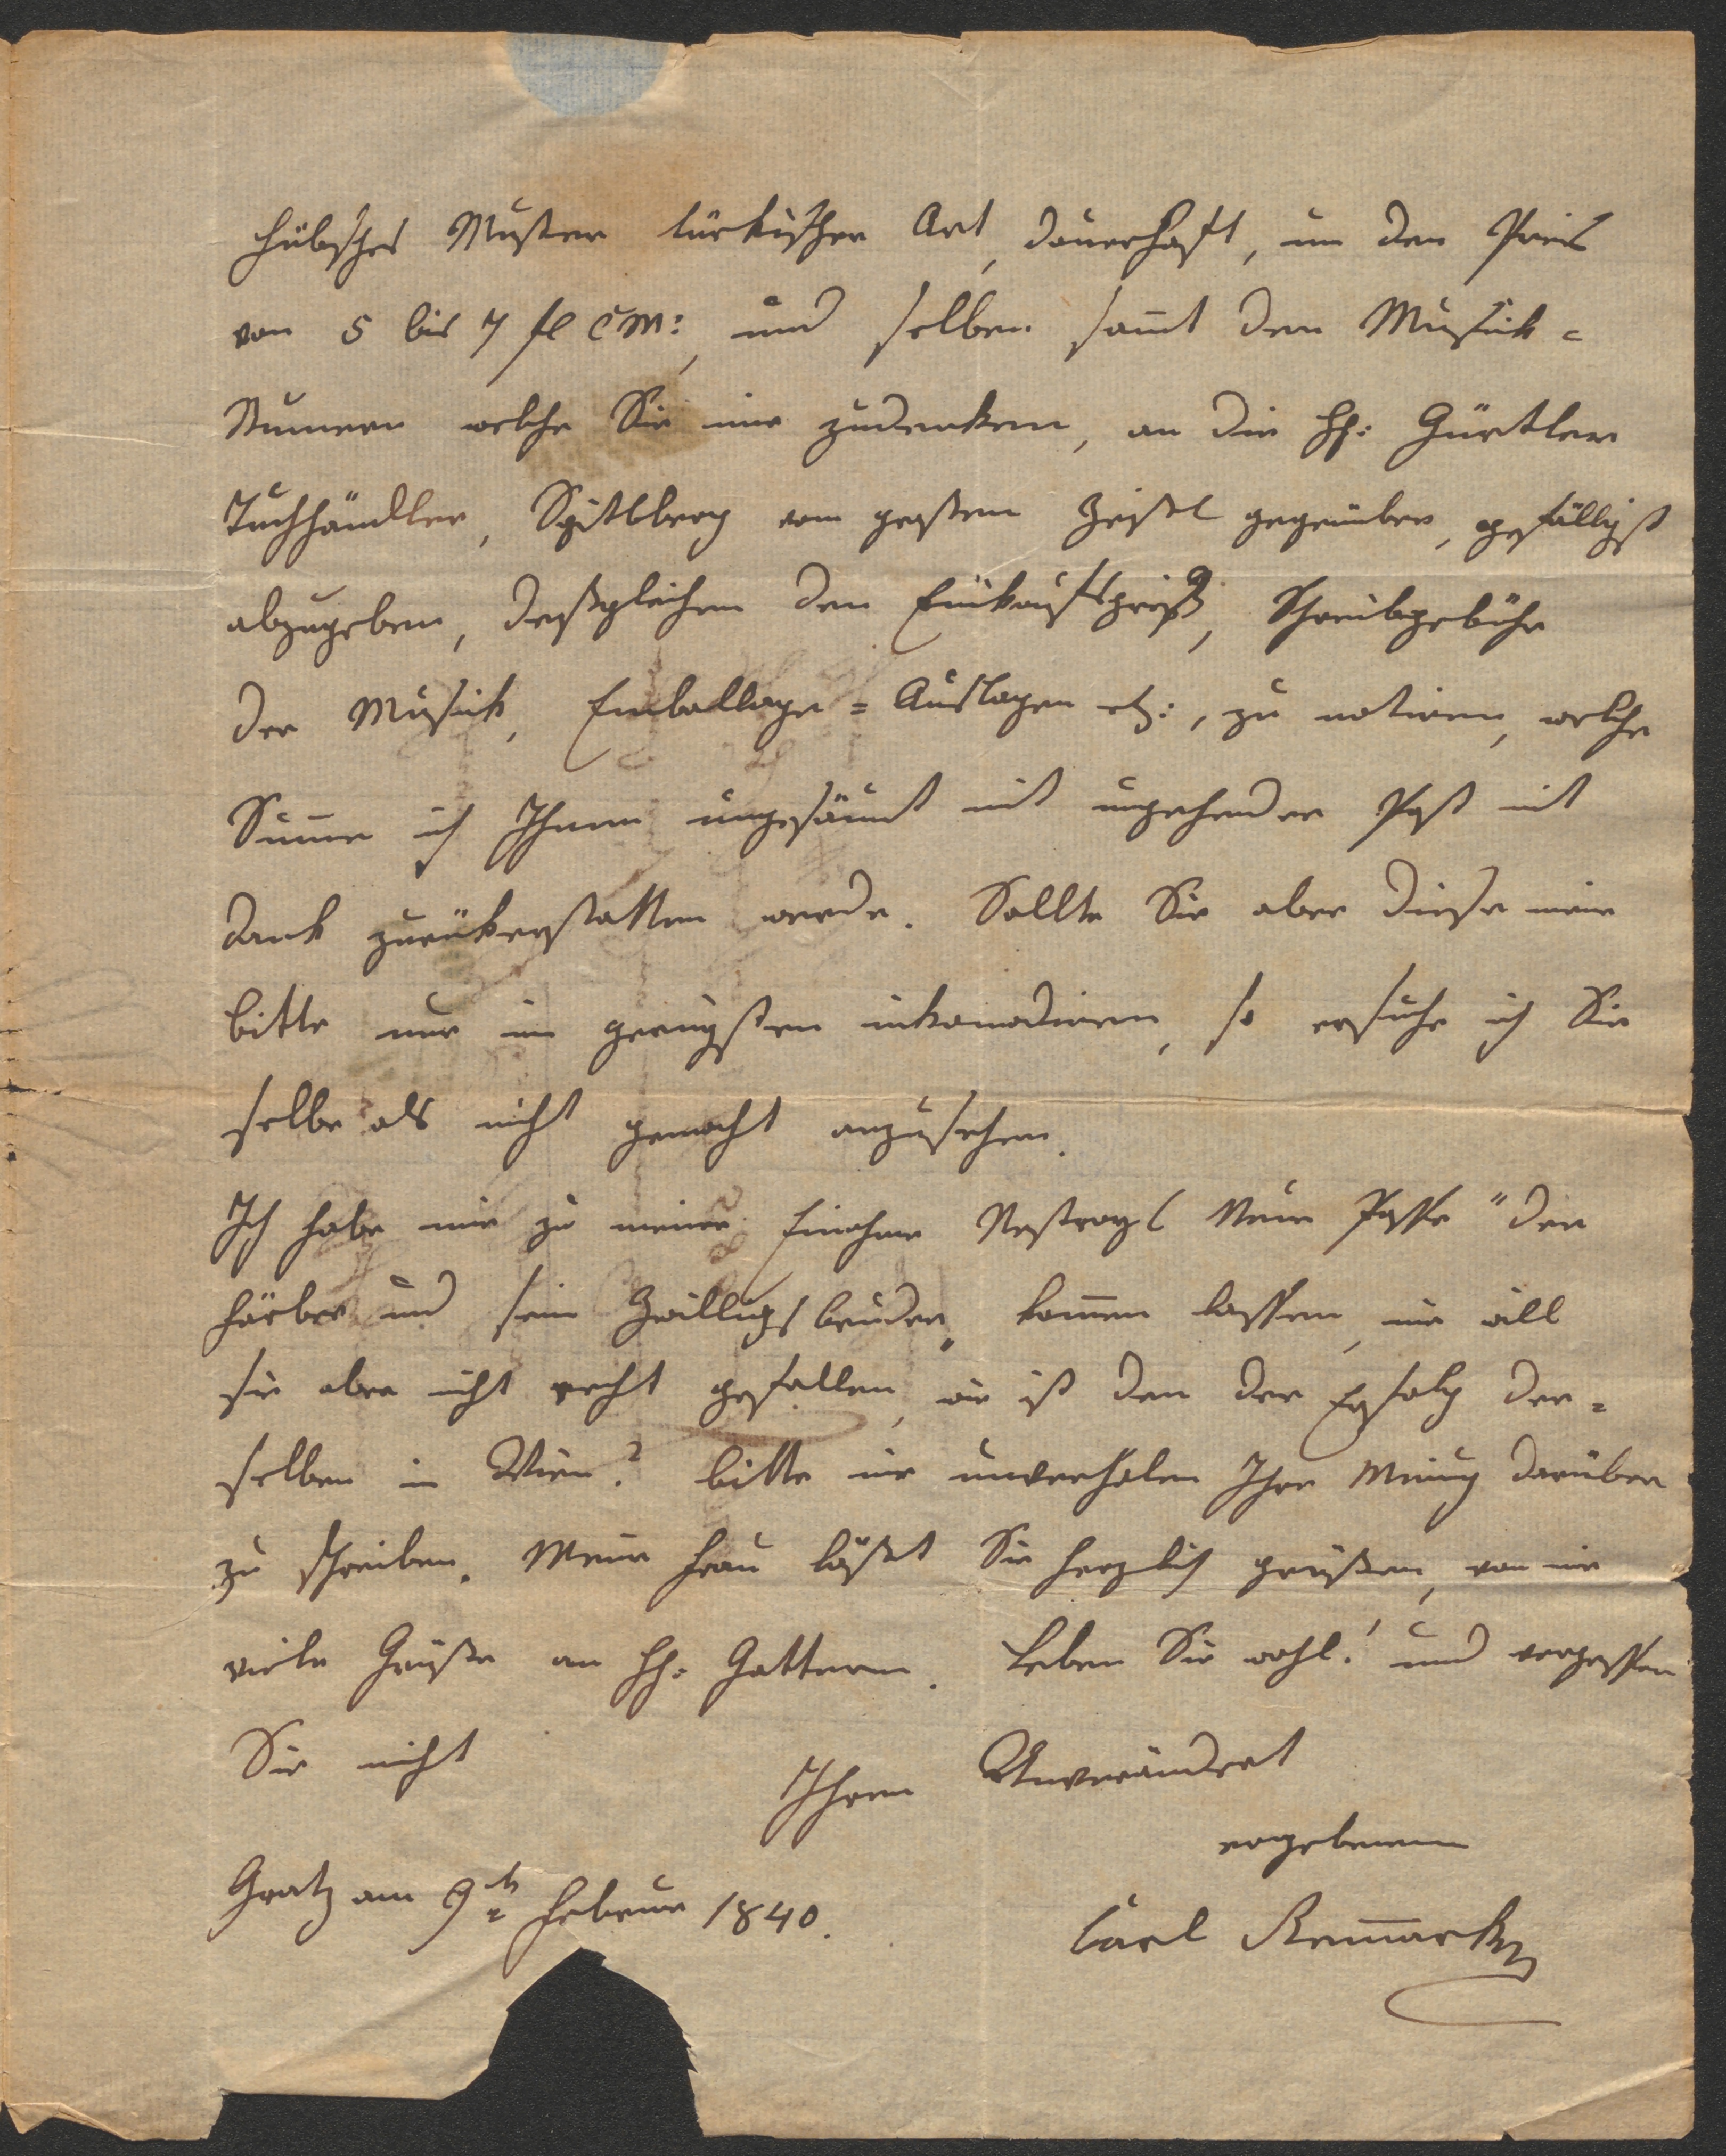 hübsches Muster türkischer Art, dauerhaft, um den Preis
von 5 bis 7 fl CM:, und selben samt den Musick=
Numern welche Sie mir zudenken, an die HH: Gürtler
Tuchhändler, Spitlberg vom großen Zeisel gegenüber, gefälligst
abzugeben, deßgleichen den Einkaufspreiß, Schreibgebühr
der Musick, Emballage=Auslagen etz:, zu notiren, welche
Sume ich Ihnen ungesäumt mit umgehender Post mit
Dank zurükerstatten werde. Sollte Sie aber diese meine
Bitte nur im geringsten inkomodiren, so ersuche ich Sie
selbe als nicht gemacht anzusehen.
Ich habe mir zu meiner Einahme Nestroys Neue Posse "der
Färber und sein Zwillingsbruder" komen lassen, mir will
sie aber nicht recht gefallen, wie ist den der Erfolg der=
selben in Wien? bitte mir unverholen Ihre Meinung darüber
zu schreiben. Meine Frau läßt Sie herzlich grüßen, von mir
viele Grüße an HH: Gattern. Leben Sie wohl! und vergessen
Sie nicht
Ihren Unverändert
ergebenen
Gratz am 9ten Februar 1840.
Carl Remmark